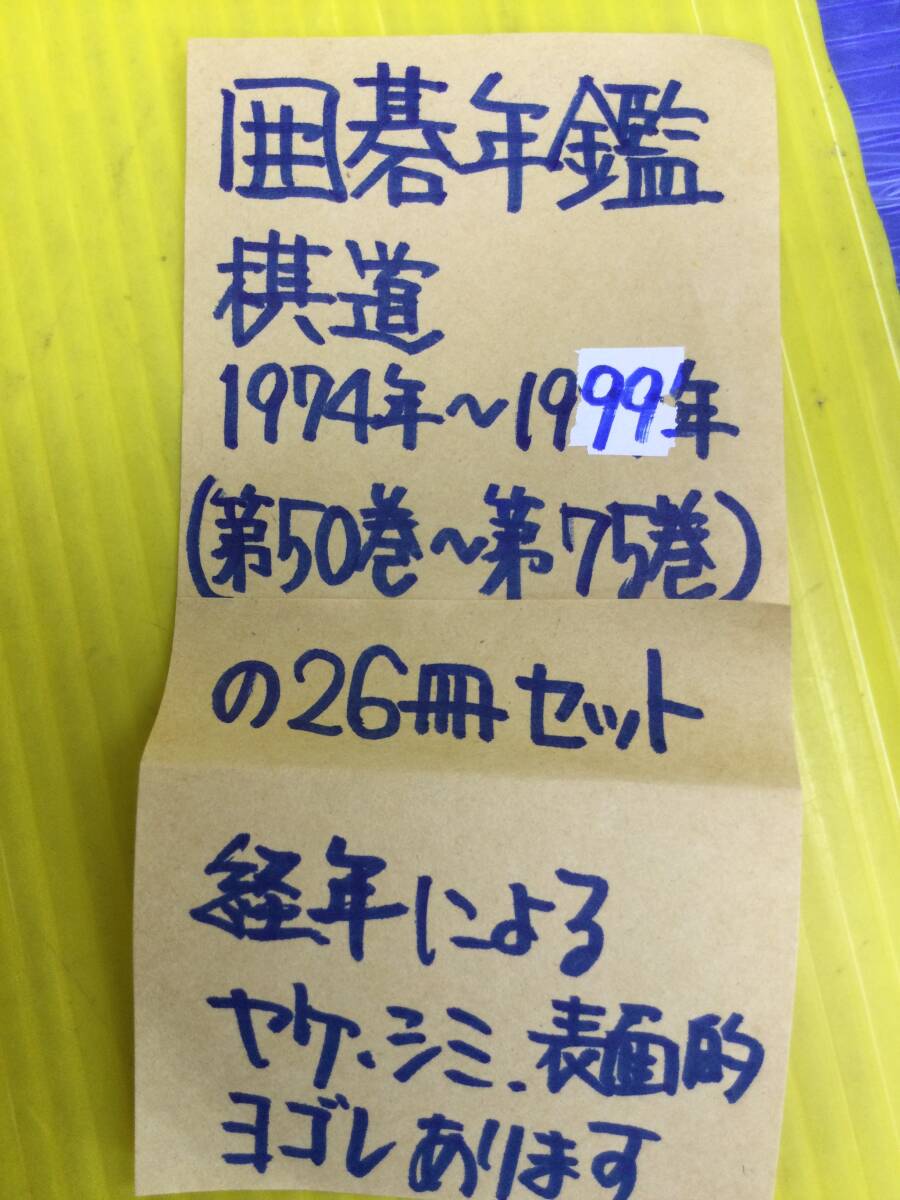 囲碁年鑑
棋道
1974年～1999年
(第50巻～第75巻)
の26冊セット
経年による
ヤケ、シミ、表面的
ヨゴレあります